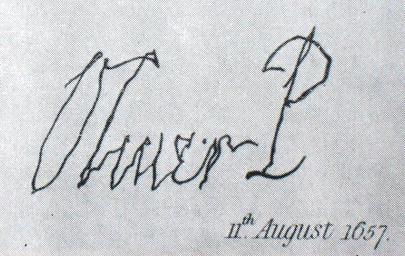 Oliver P
11th August 1657.